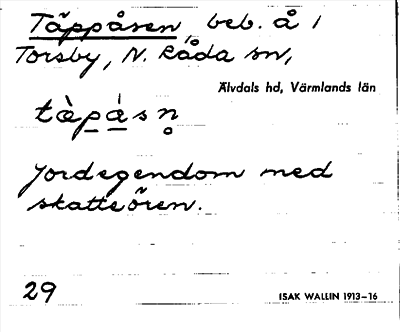 Täppåsen, beb. å 1
Torsby, N. Råda sn,
Älvdals hd, Värmlands län
tæ̀påsn̥
Jordegendom med
skatteören.
29
ISAK WALLIN 1913–16